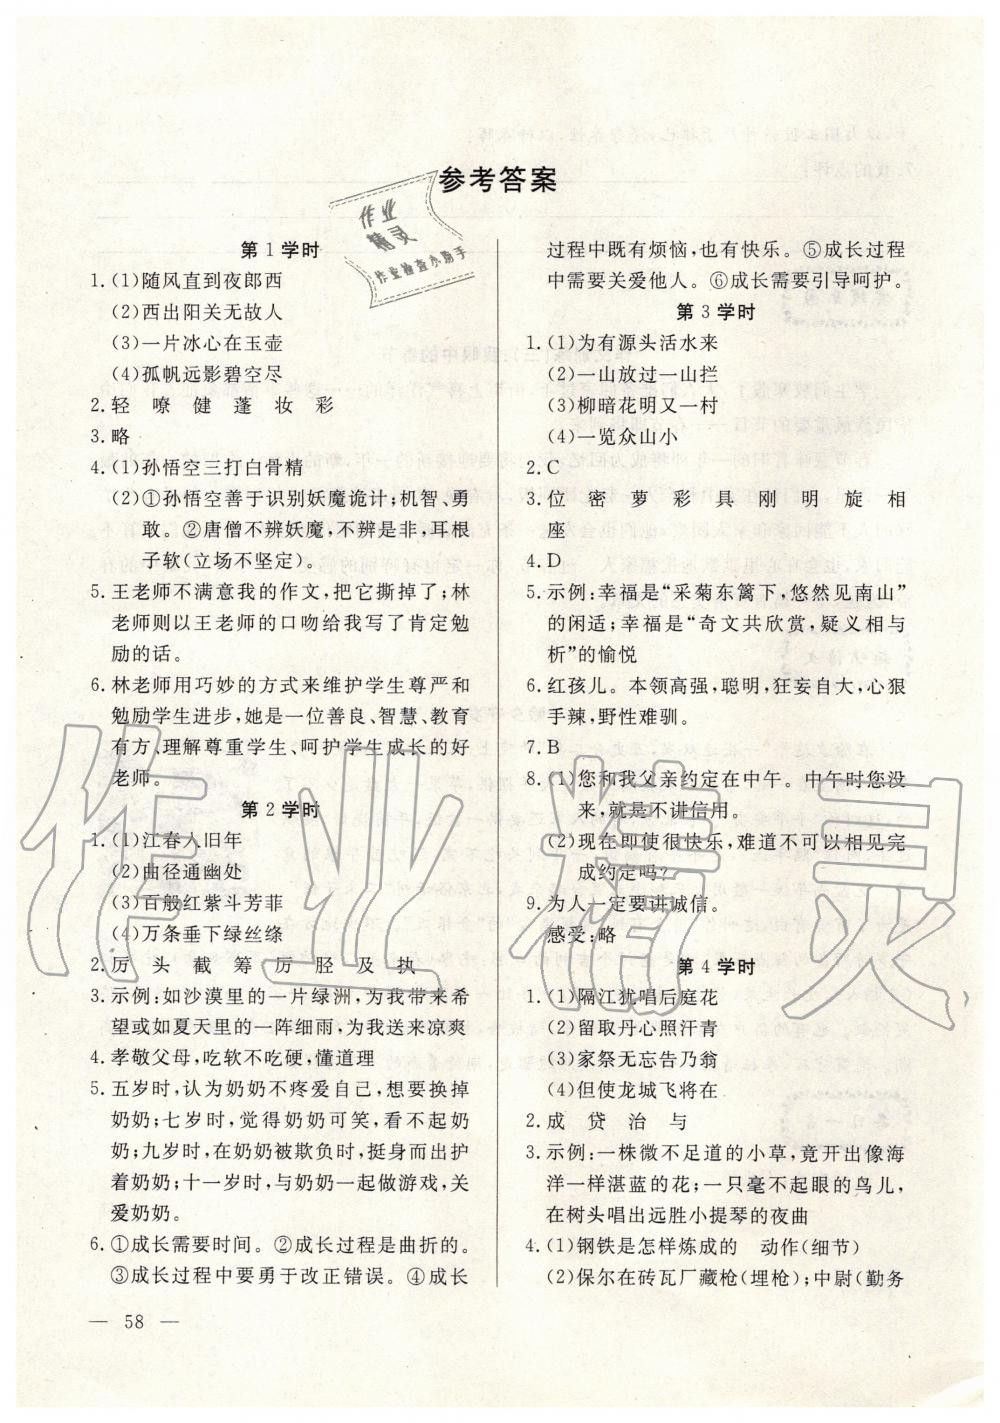 参考答案
第1学时
1.(1)随风直到夜郎西
(2)西出阳关无故人
(3)一片冰心在玉壶
(4)孤帆远影碧空尽
2.轻 嘹 健 蓬 妆 彩
3.略
4.(1)孙悟空三打白骨精
(2)①孙悟空善于识别妖魔诡计;机智、勇
敢。②唐僧不辨妖魔,不辨是非,耳根
子软(立场不坚定)。
5.王老师不满意我的作文,把它撕掉了;林
老师则以王老师的口吻给我写了肯定勉
励的话。
6.林老师用巧妙的方式来维护学生尊严和
勉励学生进步,她是一位善良、智慧、教育
有方、理解尊重学生、呵护学生成长的好
老师。
第2学时
1.(1)江春入旧年
(2)曲径通幽处
(3)百般红紫斗芳菲
(4)万条垂下绿丝绦
2.厉 头 截 筹 厉 胫 及 执
3.示例:如沙漠里的一片绿洲,为我带来希
望或如夏天里的一阵细雨,为我送来凉爽
4.孝敬父母,吃软不吃硬,懂道理
5.五岁时,认为奶奶不疼爱自己,想要换掉
奶奶;七岁时,觉得奶奶可笑,看不起奶
奶;九岁时,在奶奶被欺负时,挺身保护
奶奶;十一岁时,与奶奶一起做游戏,关
爱奶奶。
6.①成长需要时间。②成长过程是曲折的。
③成长过程中要勇于改正错误。④成长
过程中既有烦恼,也有快乐。⑤成长过程
中需要关爱他人。⑥成长需要引导呵护。
第3学时
1.(1)为有源头活水来
(2)一山放过一山拦
(3)柳暗花明又一村
(4)一览众山小
2.C
3.位 密 萝 彩 具 刚 明 旋 相
座
4.D
5.示例:幸福是“采菊东篱下,悠然见南山”
的闲适;幸福是“奇文共欣赏,疑义相与
析”的愉悦
6.红孩儿。本领高强,聪明,狂妄自大,心狠
手辣,野性难驯。
7.B
8.(1)您和我父亲约定在中午。中午时您没
来,就是不讲信用。
(2)现在即使很快乐,难道不可以相见完
成约定吗?
9.为人一定要讲诚信。
感受:略
第4学时
1.(1)隔江犹唱后庭花
(2)留取丹心照汗青
(3)家祭无忘告乃翁
(4)但使龙城飞将在
2.成 贷 治 与
3.示例:一株微不足道的小草,竟开出像海
洋一样湛蓝的花;一只毫不起眼的鸟儿,
在树头唱出远胜小提琴的夜曲
4.(1)钢铁是怎样炼成的 动作(细节)
(2)保尔在砖瓦厂藏枪(埋枪);中尉(勤务
— 58 —
作业
精灵
作业检查小助手
作业精灵